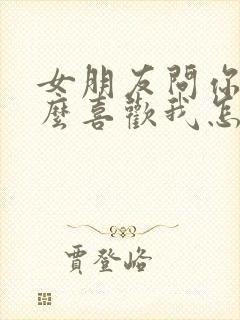 女朋友問你
麼喜歡我怎
賈登峪